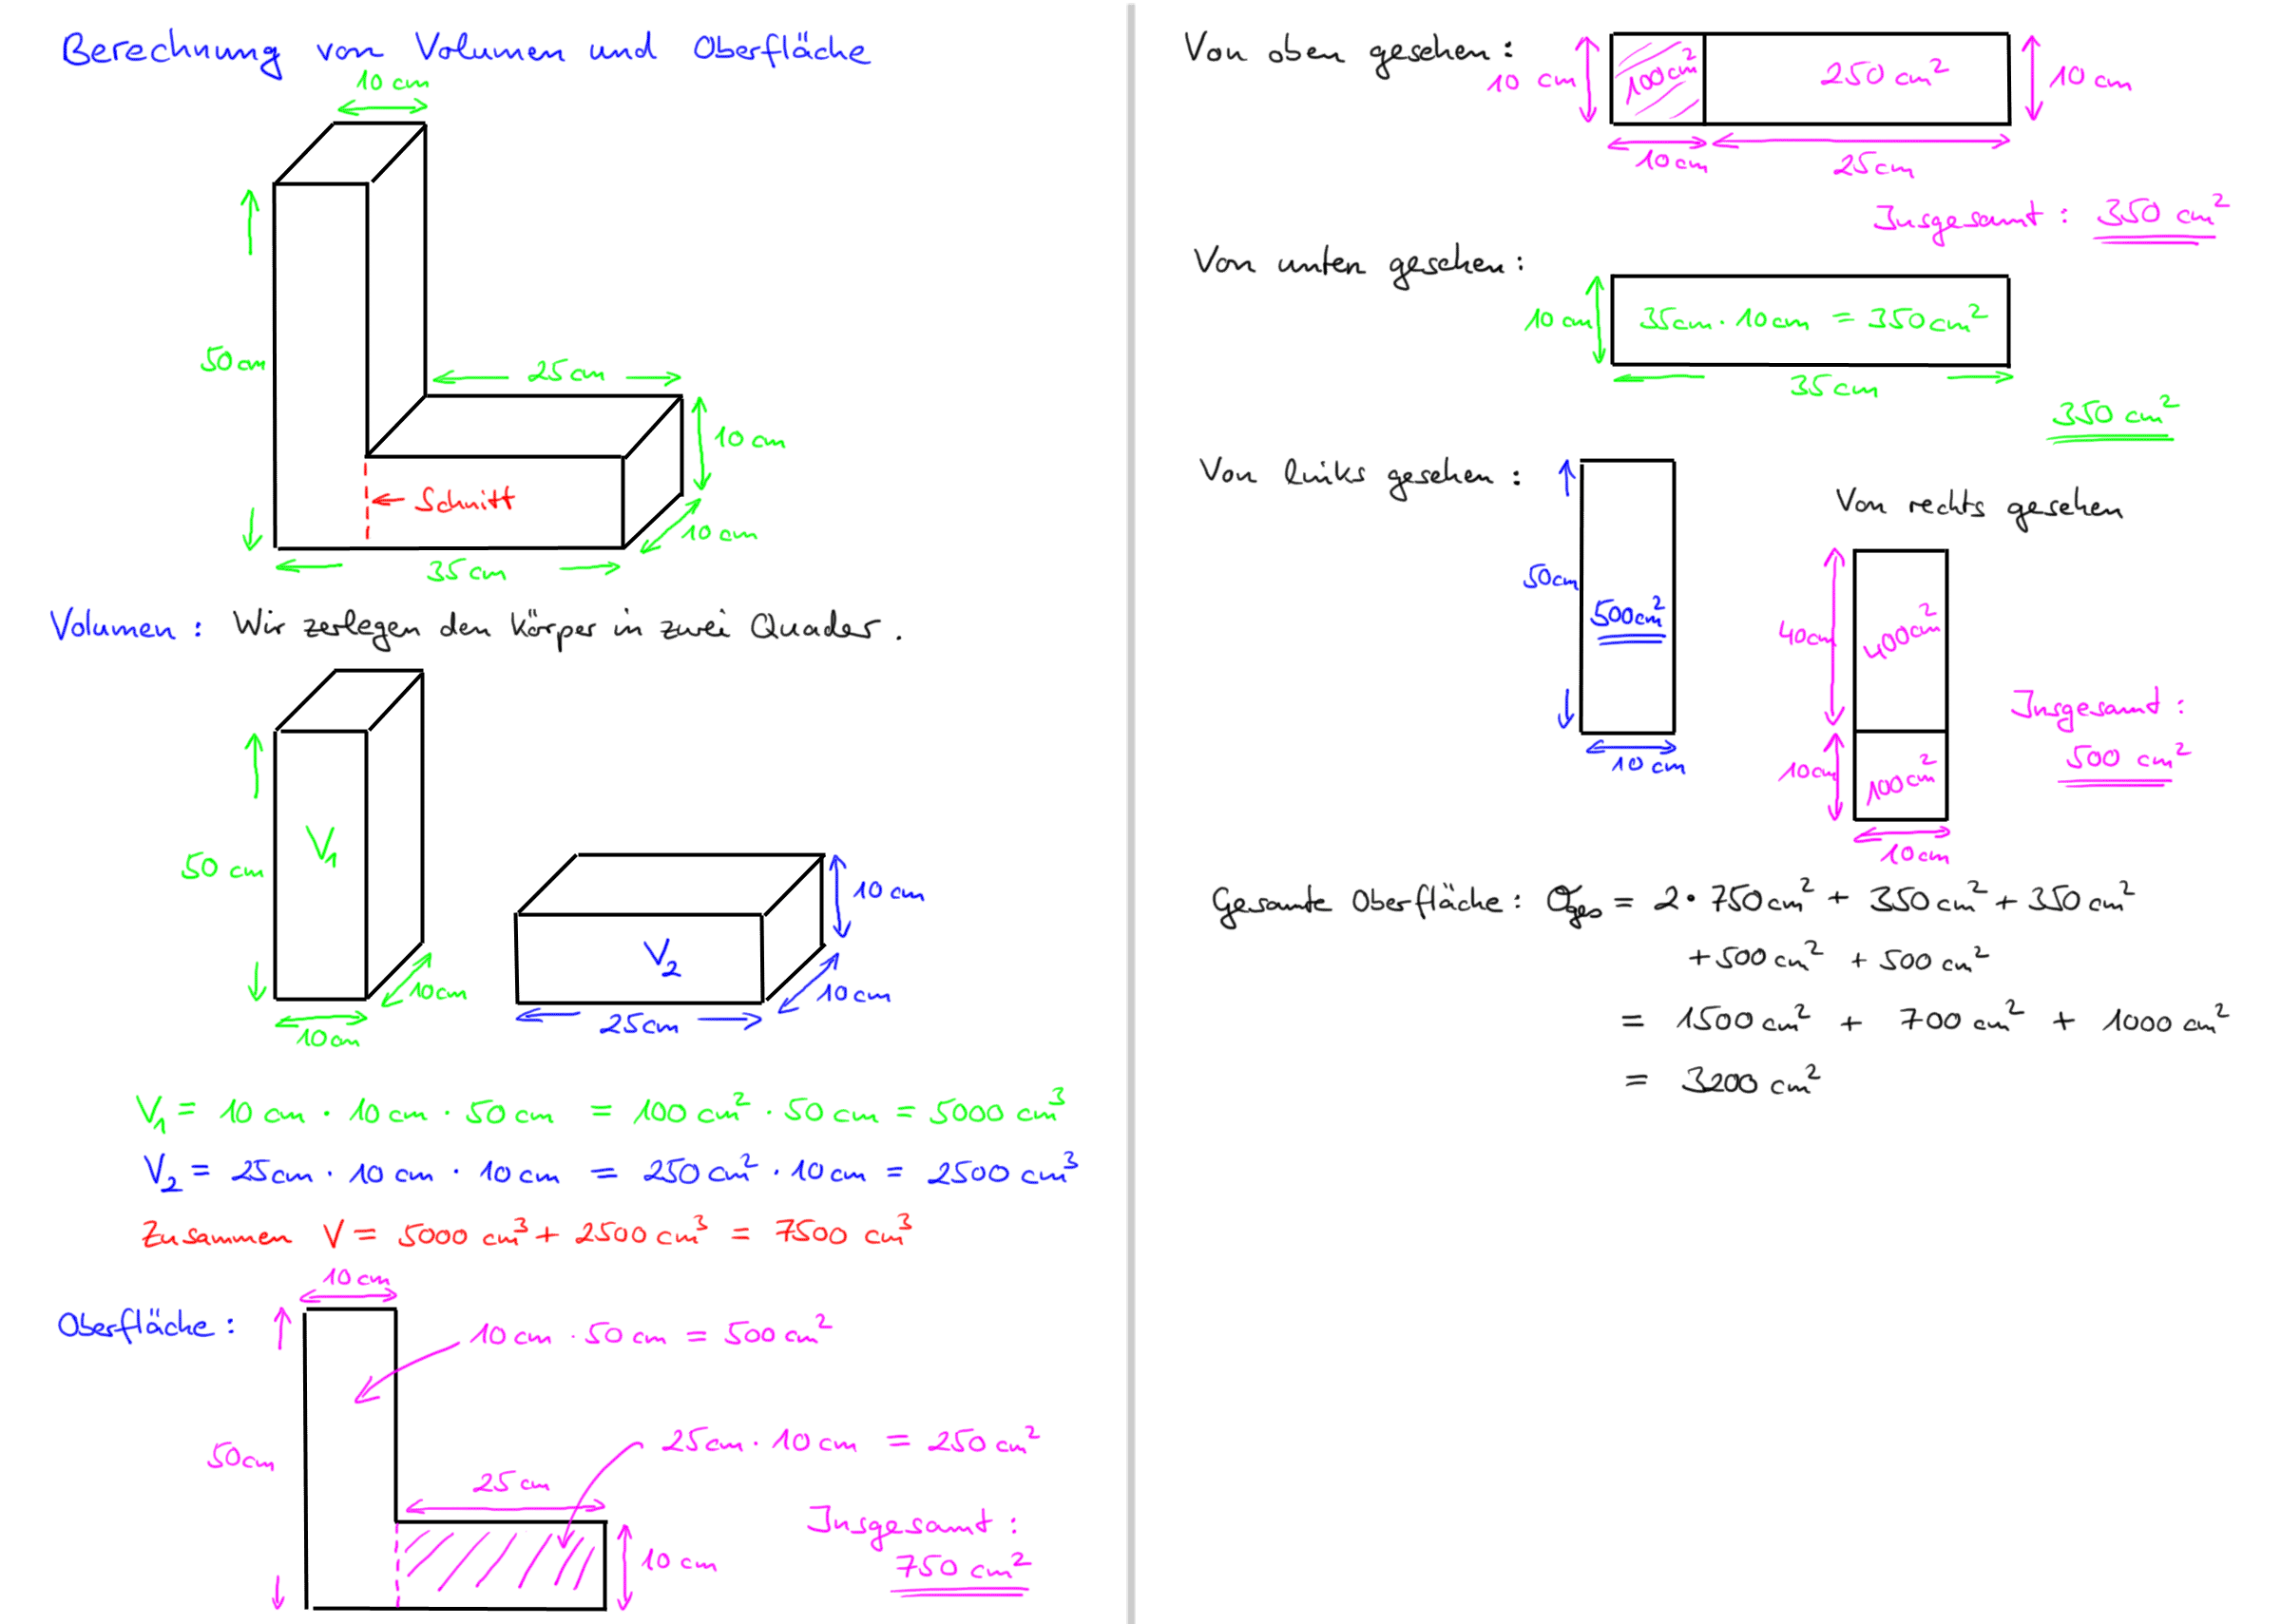 Berechnung von Volumen und Oberfläche
10 cm
50 cm
25 cm
10 cm
← Schnitt
10 cm
35 cm
Volumen : Wir zerlegen den Körper in zwei Quader.
V₁
50 cm
10 cm
V₂
10 cm
10 cm
10 cm
25 cm
V₁ = 10 cm · 10 cm · 50 cm = 100 cm² · 50 cm = 5000 cm³
V₂ = 25 cm · 10 cm · 10 cm = 250 cm² · 10 cm = 2500 cm³
Zusammen V = 5000 cm³ + 2500 cm³ = 7500 cm³
10 cm
Oberfläche :
10 cm · 50 cm = 500 cm²
50 cm
25 cm · 10 cm = 250 cm²
25 cm
10 cm
Insgesamt :
750 cm²
Von oben gesehen :
10 cm
100 cm²
250 cm²
10 cm
10 cm
25 cm
Insgesamt : 350 cm²
Von unten gesehen :
10 cm
35 cm · 10 cm = 350 cm²
35 cm
350 cm²
Von links gesehen :
50 cm
500 cm²
10 cm
Von rechts gesehen
40 cm
400 cm²
10 cm
100 cm²
10 cm
Insgesamt :
500 cm²
Gesamte Oberfläche : O_ges = 2 · 750 cm² + 350 cm² + 350 cm²
+ 500 cm² + 500 cm²
= 1500 cm² + 700 cm² + 1000 cm²
= 3200 cm²